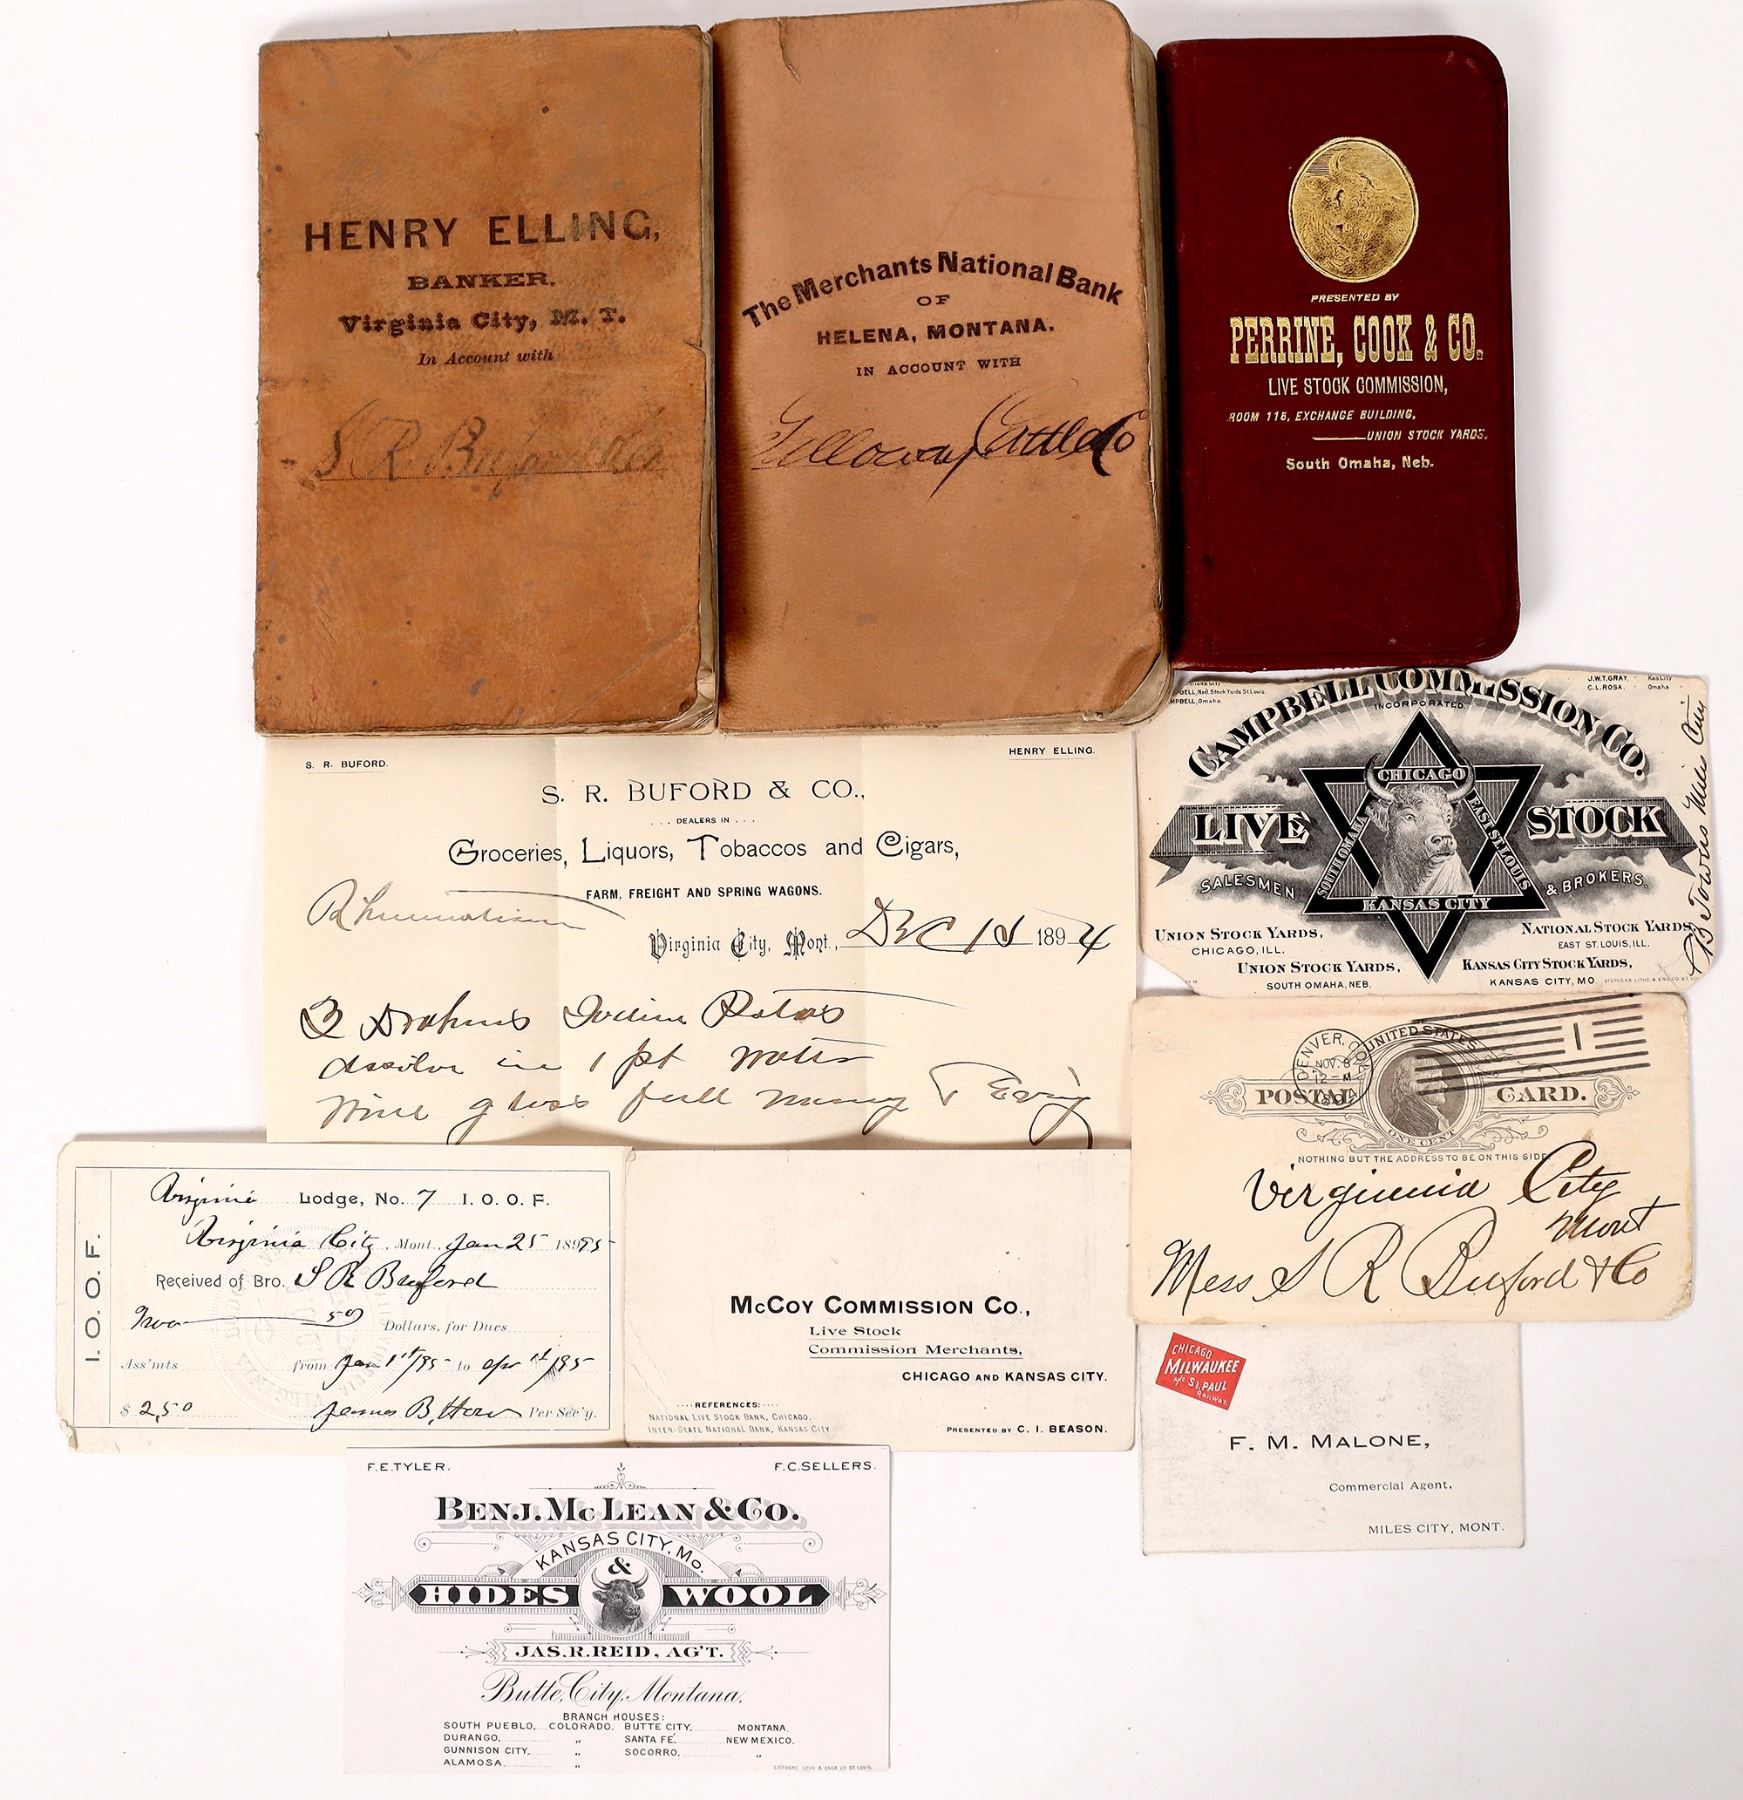 HENRY ELLING,
BANKER.
Virginia City, M. T.
In Account with
S R Buford & Co
The Merchants National Bank
OF
HELENA, MONTANA.
IN ACCOUNT WITH
Galloway Cattle Co
PRESENTED BY
PERRINE, COOK & CO.
LIVE STOCK COMMISSION,
ROOM 115, EXCHANGE BUILDING,
UNION STOCK YARDS.
South Omaha, Neb.
S. R. BUFORD.
HENRY ELLING.
S. R. BUFORD & CO.,
... DEALERS IN ...
Groceries, Liquors, Tobaccos and Cigars,
FARM, FREIGHT AND SPRING WAGONS.
Rheumatism
Virginia City, Mont., Dec 1 1894
Drahms Iodine Potas
in 1 pt water
Wine glass full morng & Evng
J.W.T. GRAY, Kas.City
BELL, Nat. Stock Yards St. Louis.
C.L. ROSA, Omaha
MPBELL, Omaha.
CAMPBELL COMMISSION CO.
INCORPORATED.
CHICAGO
LIVE STOCK
SOUTH OMAHA
EAST ST. LOUIS
SALESMEN & BROKERS.
KANSAS CITY
UNION STOCK YARDS,
CHICAGO, ILL.
NATIONAL STOCK YARDS
EAST ST. LOUIS, ILL.
UNION STOCK YARDS,
SOUTH OMAHA, NEB.
KANSAS CITY STOCK YARDS,
KANSAS CITY, MO.
STEPHENS LITHO. & ENG. CO. ST. L
B Towns Miles City
DENVER, C
NOV. 8
12-M
1
UNITED STATES
POSTAL CARD.
ONE CENT
NOTHING BUT THE ADDRESS TO BE ON THIS SIDE
Virginia City
Mont
Mess S R Buford & Co
I. O. O. F.
Virginia Lodge, No. 7 I. O. O. F.
Virginia City, Mont., Jan 25 1895
Received of Bro. S R Buford
Two 50 Dollars, for Dues
Ass'mts from Jan 1st/95 to Apr 1st/95
$ 2,50 James B, How Per Sec'y.
McCOY COMMISSION CO.,
Live Stock
Commission Merchants,
CHICAGO AND KANSAS CITY.
REFERENCES:
NATIONAL LIVE STOCK BANK, CHICAGO,
INTER-STATE NATIONAL BANK, KANSAS CITY
PRESENTED BY C. I. BEASON.
CHICAGO
MILWAUKEE
& ST. PAUL
RAILWAY.
F. M. MALONE,
Commercial Agent,
MILES CITY, MONT.
F.E.TYLER.
F.C.SELLERS.
BENJ. McLEAN & CO.
KANSAS CITY, MO.
&
HIDES WOOL
JAS. R. REID, AG'T.
Butte City, Montana,
BRANCH HOUSES:
SOUTH PUEBLO, COLORADO, BUTTE CITY, MONTANA,
DURANGO, " SANTA FE, NEW MEXICO,
GUNNISON CITY, " SOCORRO, "
ALAMOSA, "
STEPHENS LITHO & ENGR. CO. ST. LOUIS